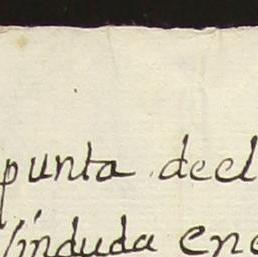 punta decl
sinduda ene